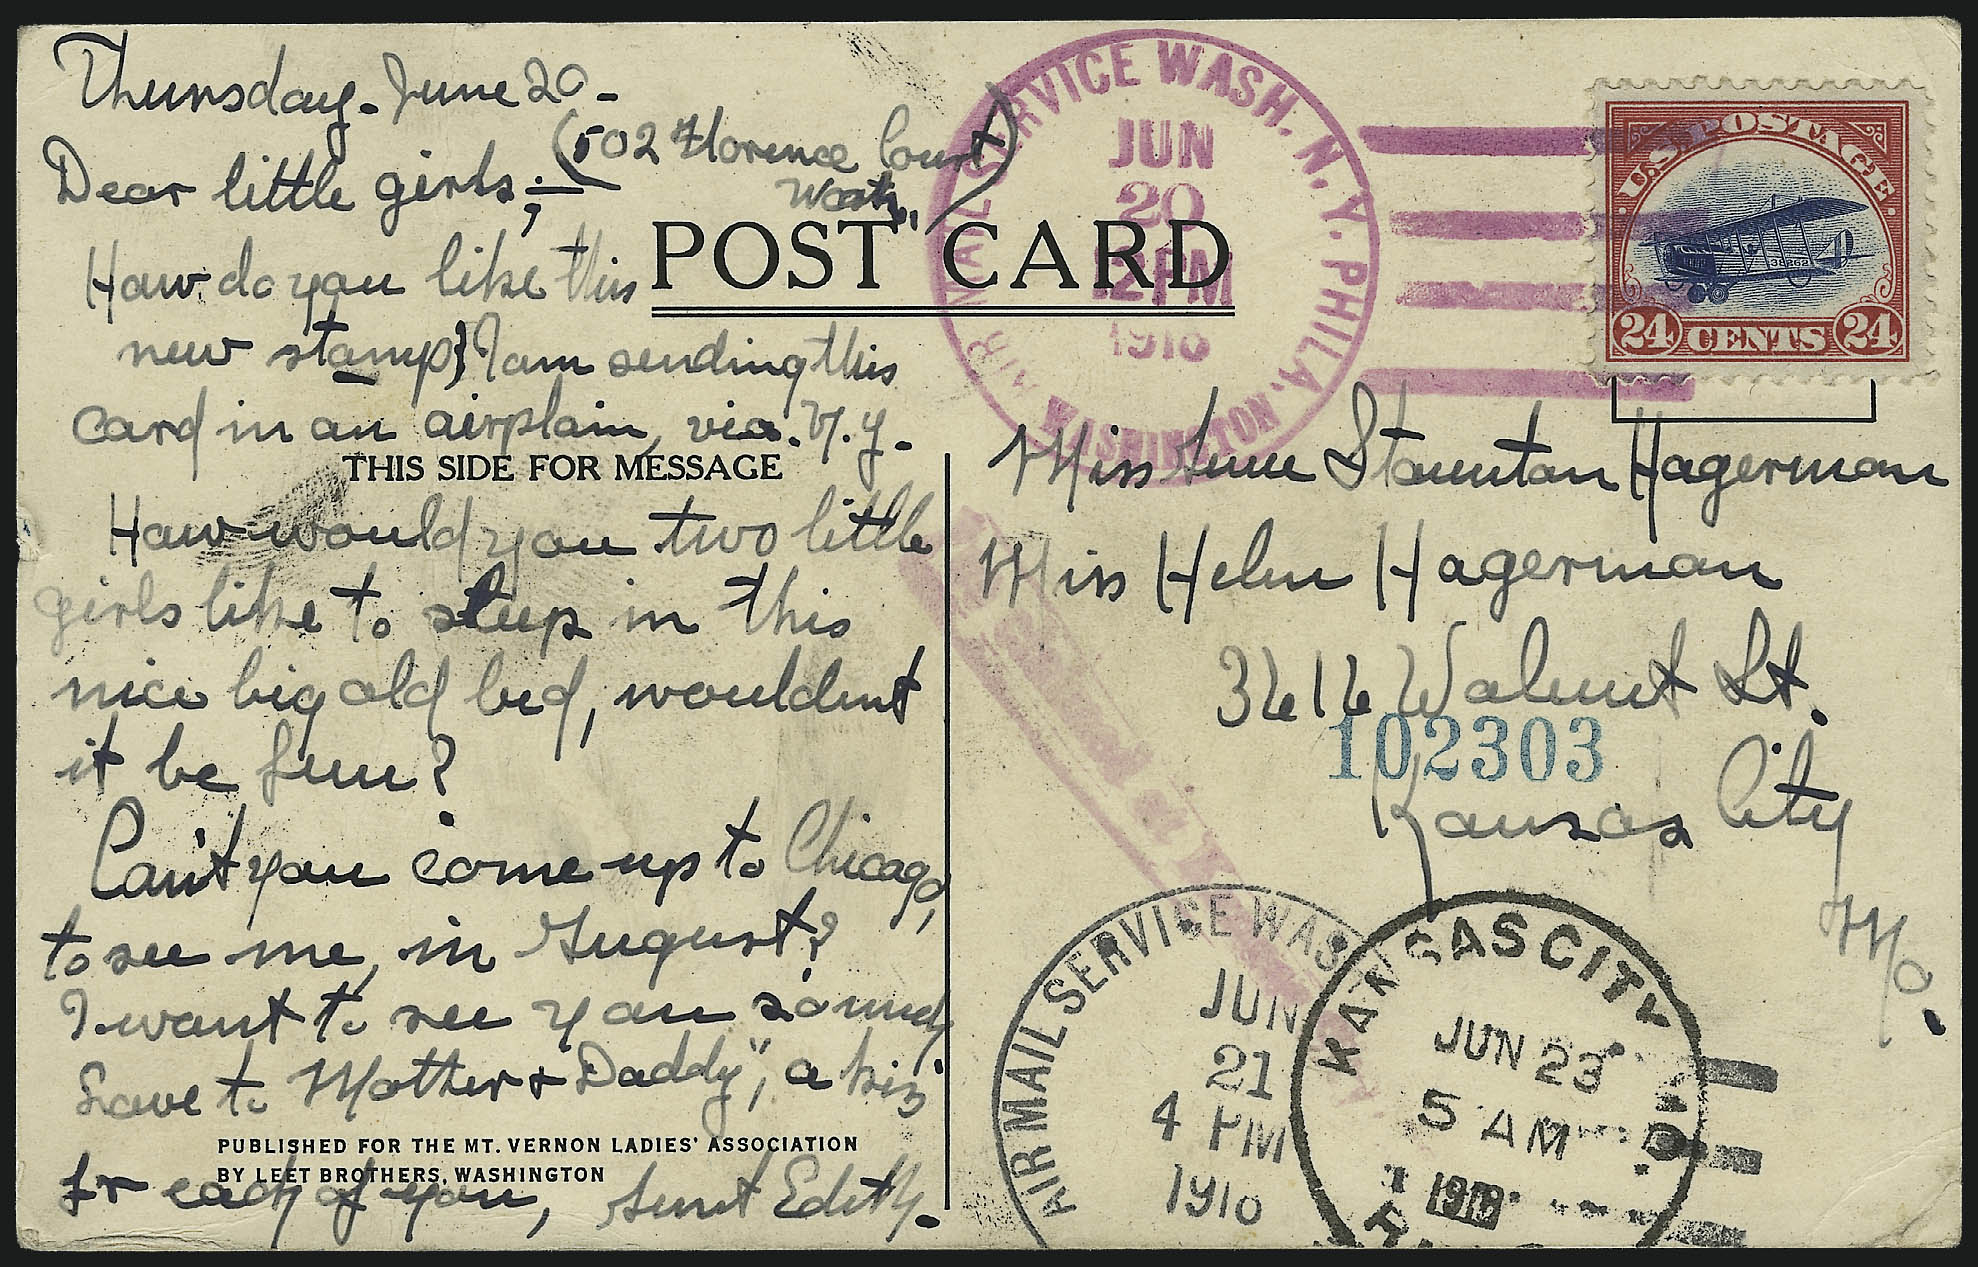 Thursday - June 20 -
(502 Florence Court
Wash.)
Dear little girls;-
How do you like this
new stamp? I am sending this
card in an airplain, via. N.Y.-
How would you two little
girls like to sleep in this
nice big old bed, wouldnt
it be fun?
Can't you come up to Chicago,
to see me, in August?
I want to see you so much
Love to "Mother & Daddy", a kiss
for each of you, Aunt Edith.
POST CARD
THIS SIDE FOR MESSAGE
PUBLISHED FOR THE MT. VERNON LADIES' ASSOCIATION
BY LEET BROTHERS, WASHINGTON
AIR MAIL SERVICE WASH. N.Y. PHILA.
JUN
20
12 PM
1918
WASHINGTON
U.S. POSTAGE
38262
24 CENTS 24
Miss Anne Staunton Hagerman
Miss Helen Hagerman
3616 Walnut St.
102303
Kansas City
Mo.
AIR MAIL SERVICE WASH
JUN
21
4 PM
1918
KANSAS CITY
JUN 23
5 AM
1918